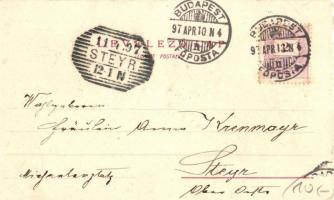 BUDAPEST
97 APR 10 N 4
FŐPOSTA
BUDAPEST
97 APR 12 N 4
FŐPOSTA
11 4 97
STEYR
12-1 N
LEVELEZŐ-LAP
Wohlgeboren
Fräulein Anna Krenmayr
Steyr
Michaelerplatz
Ober Oestr
10,-